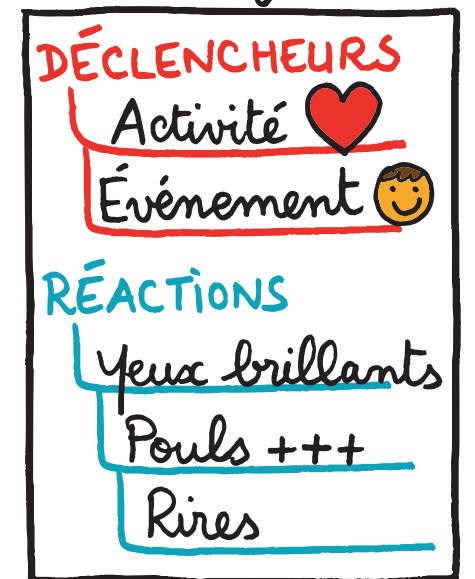 DÉCLENCHEURS
Activité
Événement
RÉACTIONS
Yeux brillants
Pouls +++
Rires